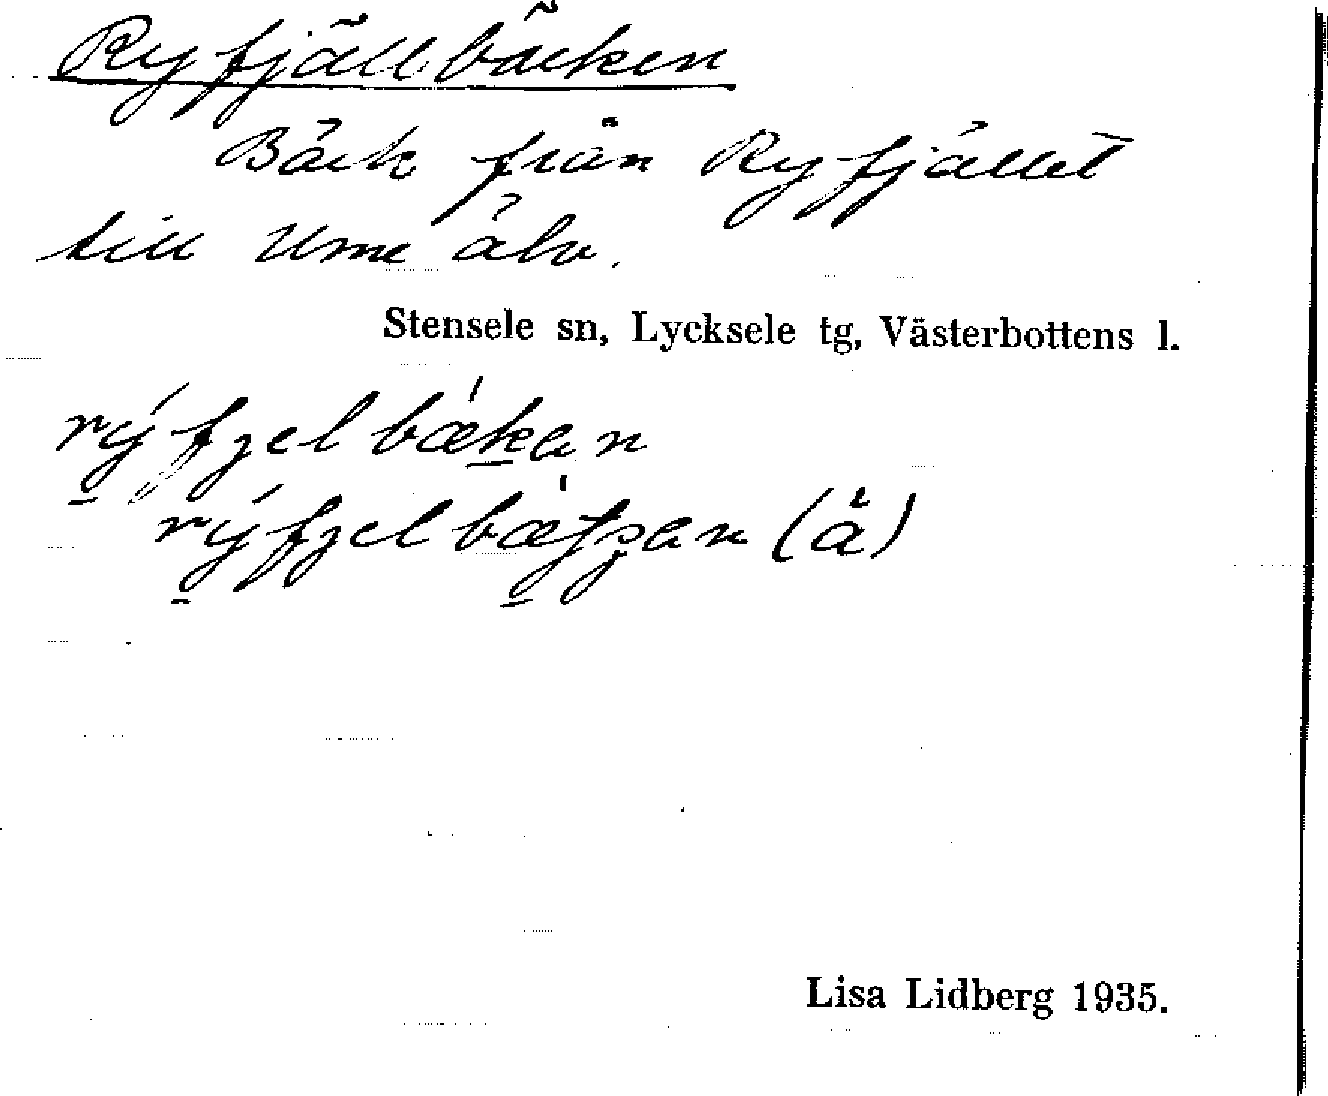 Ryfjällbäcken
Bäck från Ryfjället
till Ume älv.
Stensele sn, Lycksele tg, Västerbottens l.
rýfjelbækan
rýfjelbæʃʒan (ä)
Lisa Lidberg 1935.